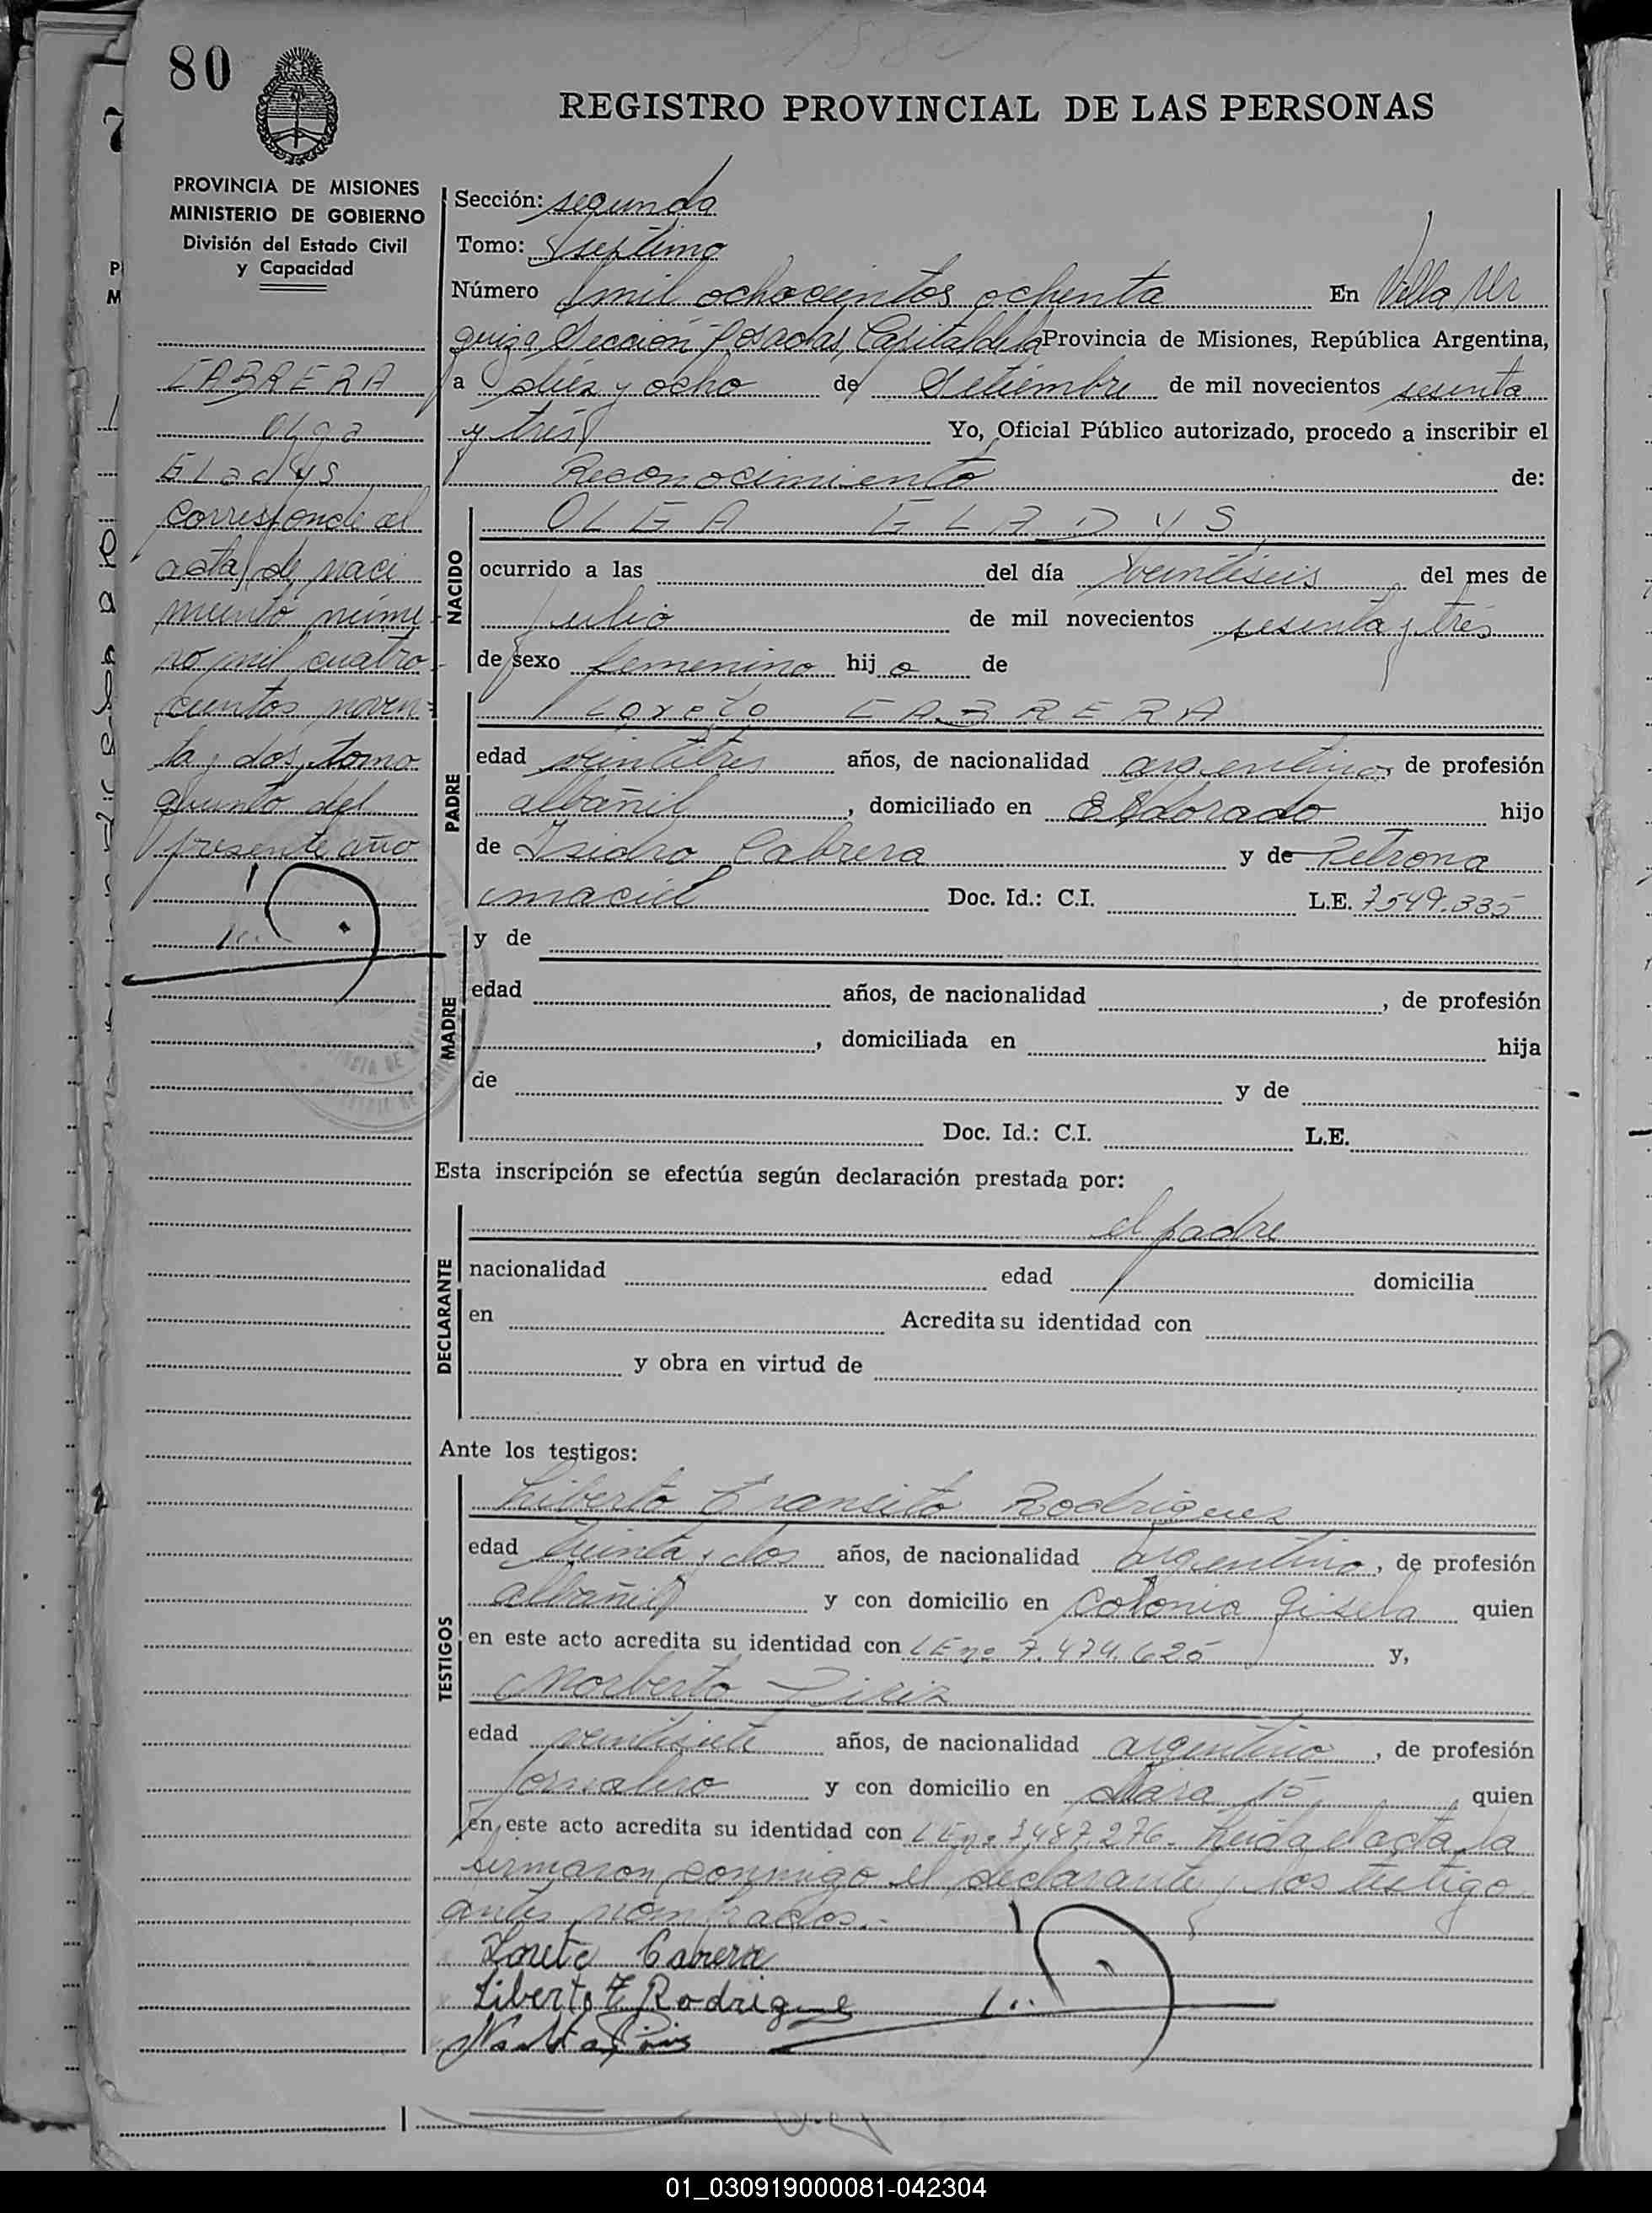 80
REGISTRO PROVINCIAL DE LAS PERSONAS
PROVINCIA DE MISIONES
MINISTERIO DE GOBIERNO
División del Estado Civil
y Capacidad
CABRERA
Olga
Gladys
Corresponde al
acta de naci
miento núme
ro mil cuatro
cientos noven
ta y dos, tomo
quinto del
presente año
Sección: segunda
Tomo: Septimo
Número mil ochocientos ochenta En Villa Ur
quiza Sección Posadas, Capital de la Provincia de Misiones, República Argentina,
a diez y ocho de Setiembre de mil novecientos sesenta
y tres Yo, Oficial Público autorizado, procedo a inscribir el
Reconocimiento de:
NACIDO
OLGA GLADYS
ocurrido a las del día veintiseis del mes de
julio de mil novecientos sesenta y tres
de sexo femenino hija de
PADRE
Loreto CABRERA
edad veintitres años, de nacionalidad argentino, de profesión
albañil, domiciliado en Eldorado hijo
de Isidro Cabrera y de Petrona
maciel Doc. Id.: C.I. L.E. 7549.335
MADRE
y de
edad años, de nacionalidad , de profesión
, domiciliada en hija
de y de
Doc. Id.: C.I. L.E.
Esta inscripción se efectúa según declaración prestada por:
DECLARANTE
el padre
nacionalidad edad domicilia
en Acredita su identidad con
y obra en virtud de
Ante los testigos:
TESTIGOS
Liberto Transito Rodrigues
edad treinta y dos años, de nacionalidad argentino, de profesión
albañil y con domicilio en Colonia Gisela quien
en este acto acredita su identidad con LE nº 7.474.625 y,
Norberto Piriz
edad veintisiete años, de nacionalidad argentino, de profesión
jornalero y con domicilio en 15 quien
en este acto acredita su identidad con LE nº 7487.276. Leida el acta, la
firmaron conmigo el declarante y los testigo
antes nombrados.-
Loreto Cabrera
Liberto T Rodrigues
01_030919000081-042304